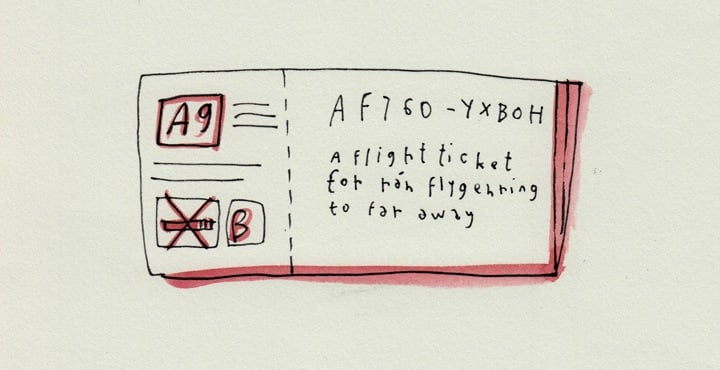 A9
B
AF760-YXBOH
A flight ticket
for rán flygenring
to far away